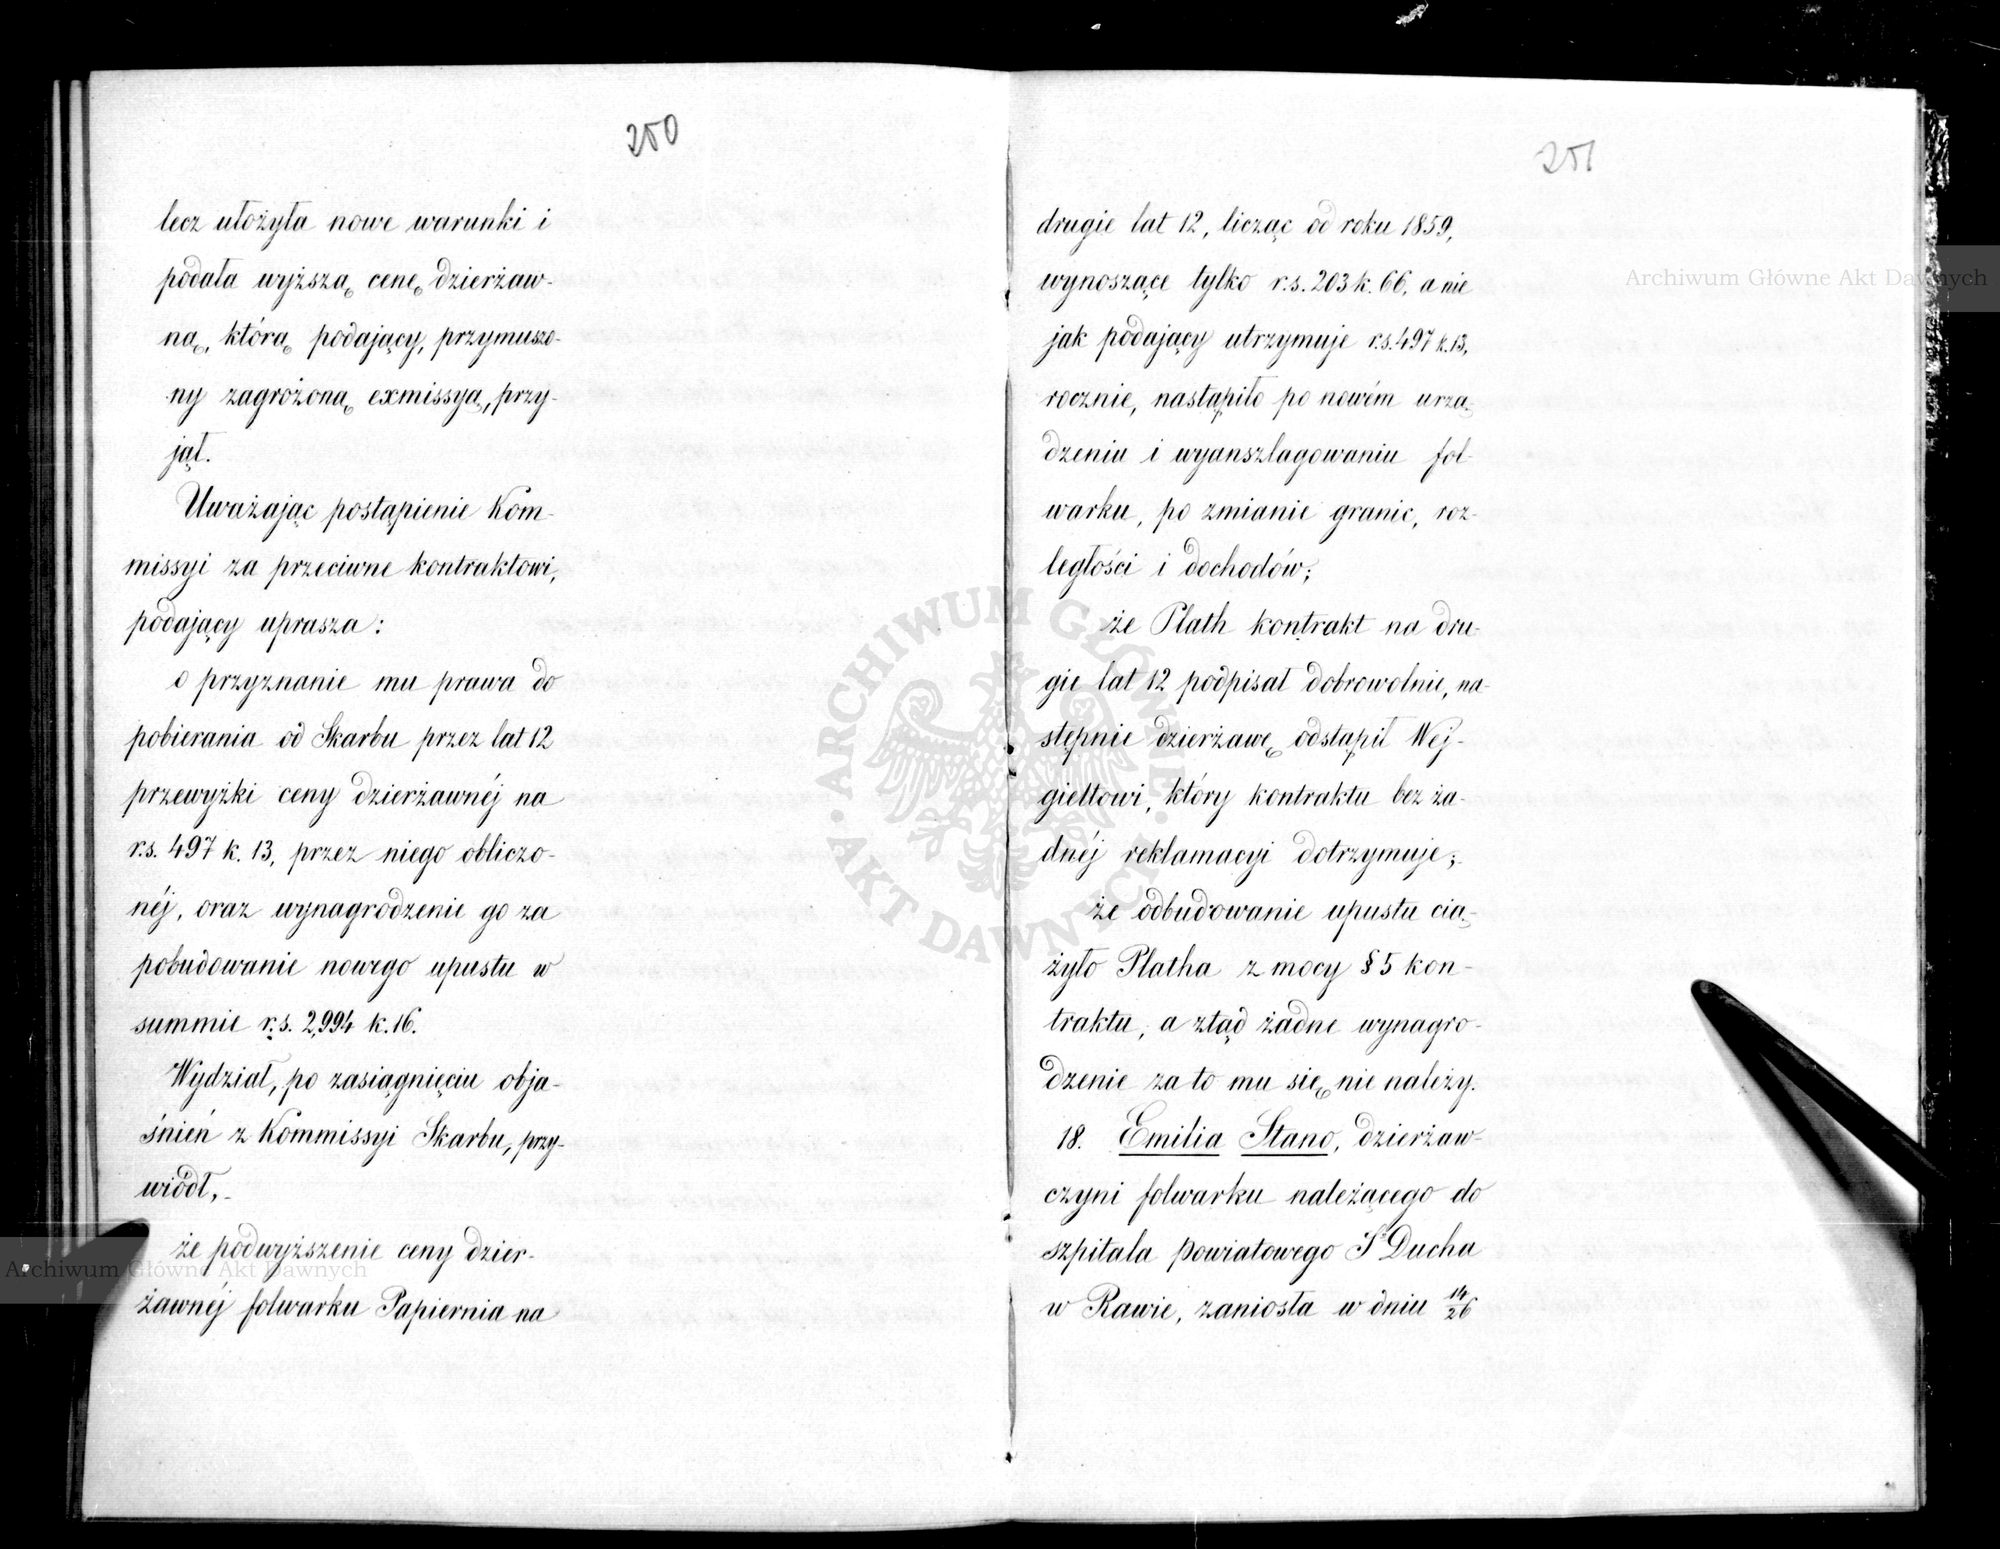 250
lecz ułożyła nowe warunki i
podała wyższą cenę dzierżaw-
ną, którą podający, przymuszo-
ny zagrożoną exmissyą, przy-
jął.
Uważając postąpienie Kom-
missyi za przeciwne kontraktowi,
podający uprasza:
o przyznanie mu prawa do
pobierania od Skarbu przez lat 12
przewyżki ceny dzierżawnéj na
r.s. 497 k. 13, przez niego obliczo-
néj, oraz wynagrodzenie go za
pobudowanie nowego upustu w
summie r.s. 2,994 k. 16.
Wydział, po zasiągnięciu obja-
śnień z Kommissyi Skarbu, przy-
wiódł,
że podwyższenie ceny dzier-
żawnéj folwarku Papiernia na
251
drugie lat 12, licząc od roku 1859,
wynoszące tylko r.s. 203 k. 66, a nie
jak podający utrzymuje r.s. 497 k. 13,
rocznie, nastąpiło po nowém urzą-
dzeniu i wyanszlagowaniu fol-
warku, po zmianie granic, roz-
ległości i dochodów;
że Plath kontrakt na dru-
gie lat 12 podpisał dobrowolnie, na-
stępnie dzierżawę odstąpił Wej-
gieltowi, który kontraktu bez ża-
dnéj reklamacyi dotrzymuje;
że odbudowanie upustu cią-
żyło Platha z mocy § 5 kon-
traktu, a ztąd żadne wynagro-
dzenie za to mu się nie należy.
18. Emilia Stano, dzierżaw-
czyni folwarku należącego do
szpitala powiatowego Sº Ducha
w Rawie, zaniosła w dniu 14/26
Archiwum Główne Akt Dawnych
Archiwum Główne Akt Dawnych
ARCHIWUM GŁÓWNE AKT DAWNYCH